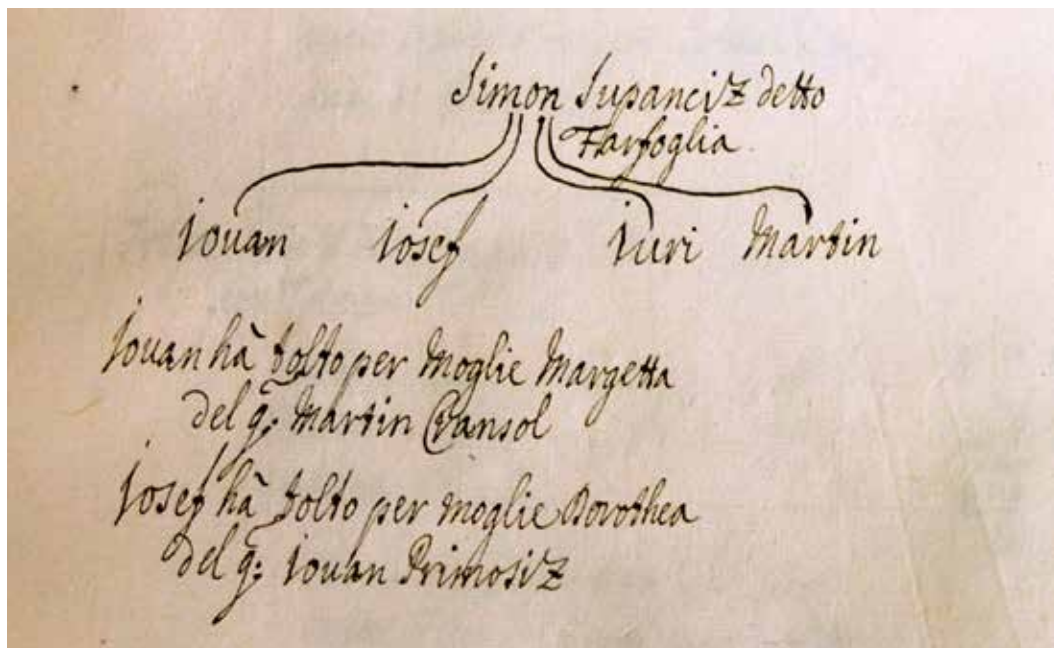 Simon Supanciz detto
Farfoglia
Jouan Josef Juri Martin
Jouan hà tolto per Moglie Margetta
del q: Martin Cransol
Josef hà tolto per moglie Dorothea
del q: Jouan Primosiz